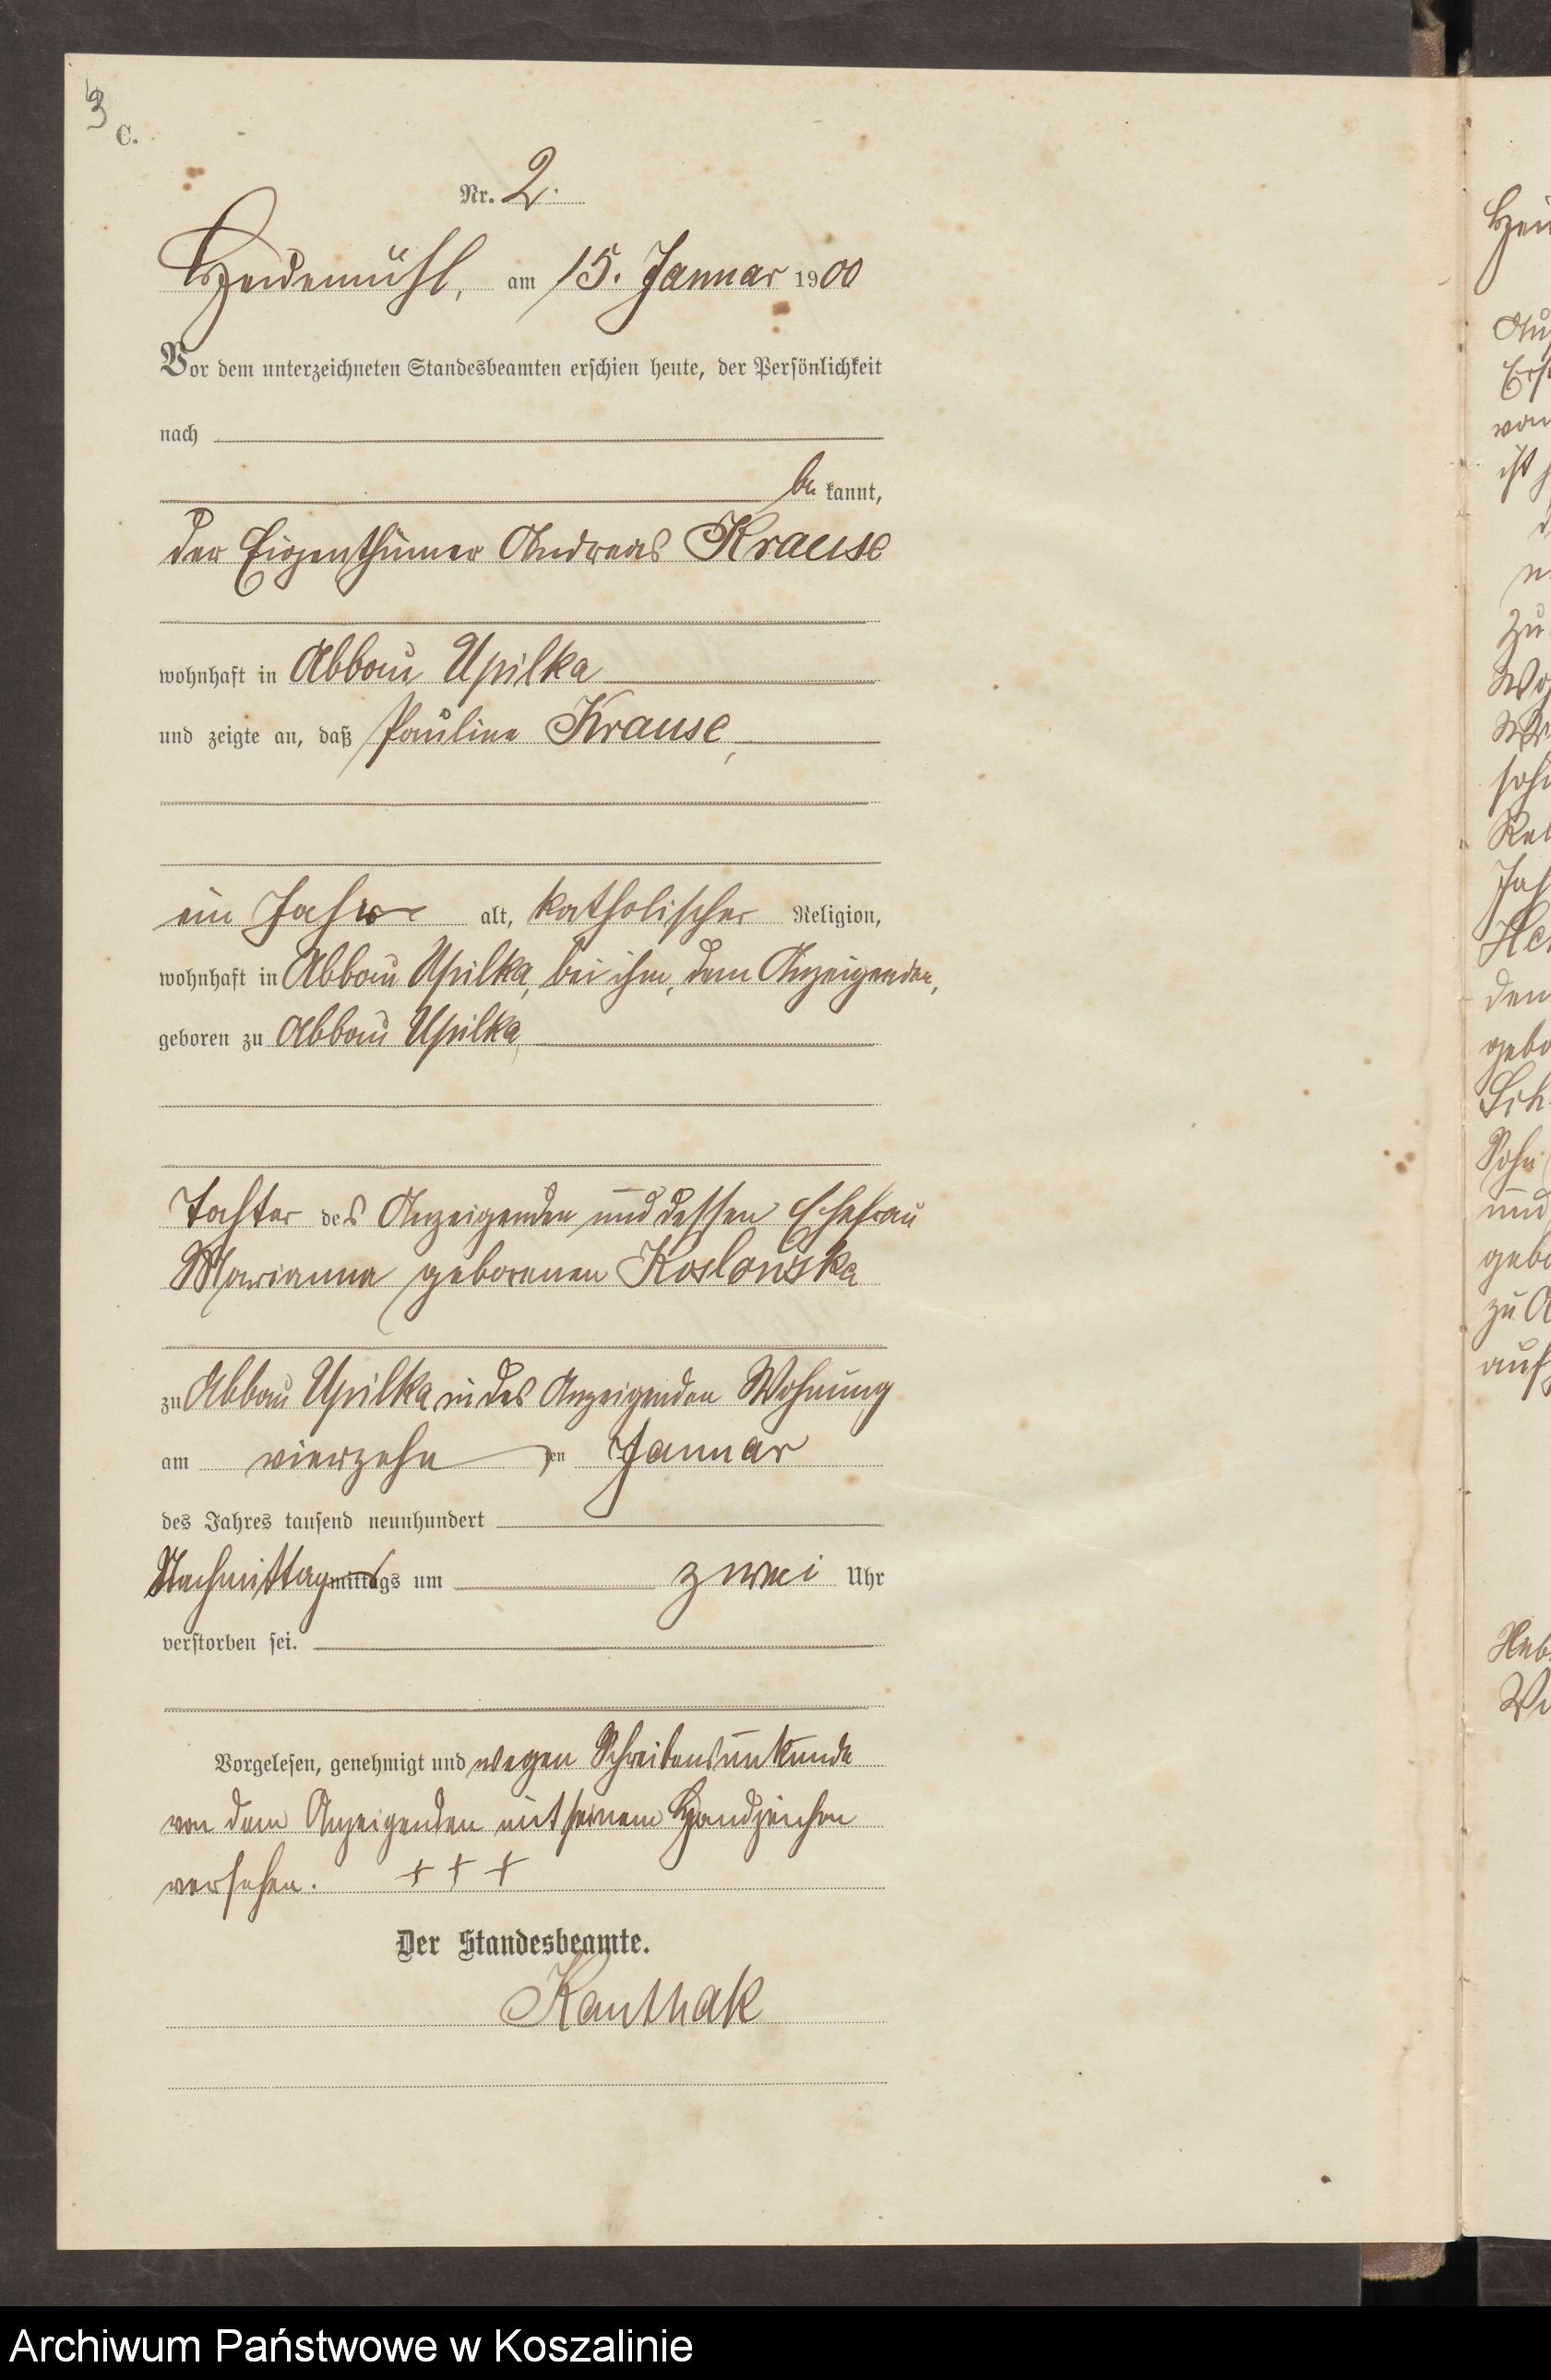 3
C.
Nr. 2.
Heidemühl, am 15. Januar 1900
Vor dem unterzeichneten Standesbeamten erschien heute, der Persönlichkeit
nach
be kannt,
der Eigenthümer Andreas Krause
wohnhaft in Abbau Upilka
und zeigte an, daß Pauline Krause,
ein Jahr alt, katholischer Religion,
wohnhaft in Abbau Upilka, bei ihm, dem Anzeigenden,
geboren zu Abbau Upilka,
Tochter des Anzeigenden und dessen Ehefrau
Marianna geborenen Koslowska
zu Abbau Upilka in des Anzeigenden Wohnung
am vierzehn ten Januar
des Jahres tausend neunhundert
Nachmittag mittags um zwei Uhr
verstorben sei.
Vorgelesen, genehmigt und wegen Schreibensunkunde
von dem Anzeigenden mit seinem Handzeichen
versehen. + + +
Der Standesbeamte.
Kanthak
Archiwum Państwowe w Koszalinie